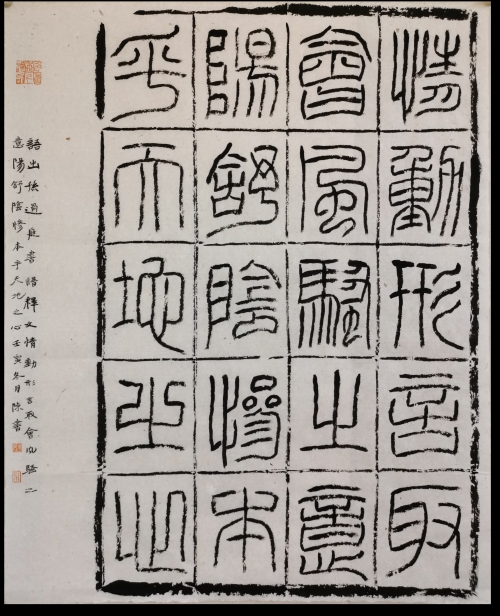 情動形言取
會風騷之意
陽舒陰慘本
乎天地之心
語出孫過庭書譜釋文情動形言取會风騷之
意陽舒陰慘本乎天地之心壬寅冬月陳書